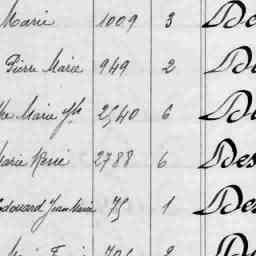 Marie 1009 3 De
Pierre Marie 949 2 De
Marie 2540 6 De
Marie René 2788 6 Des
Edouard Jean Marie 75 1 Des